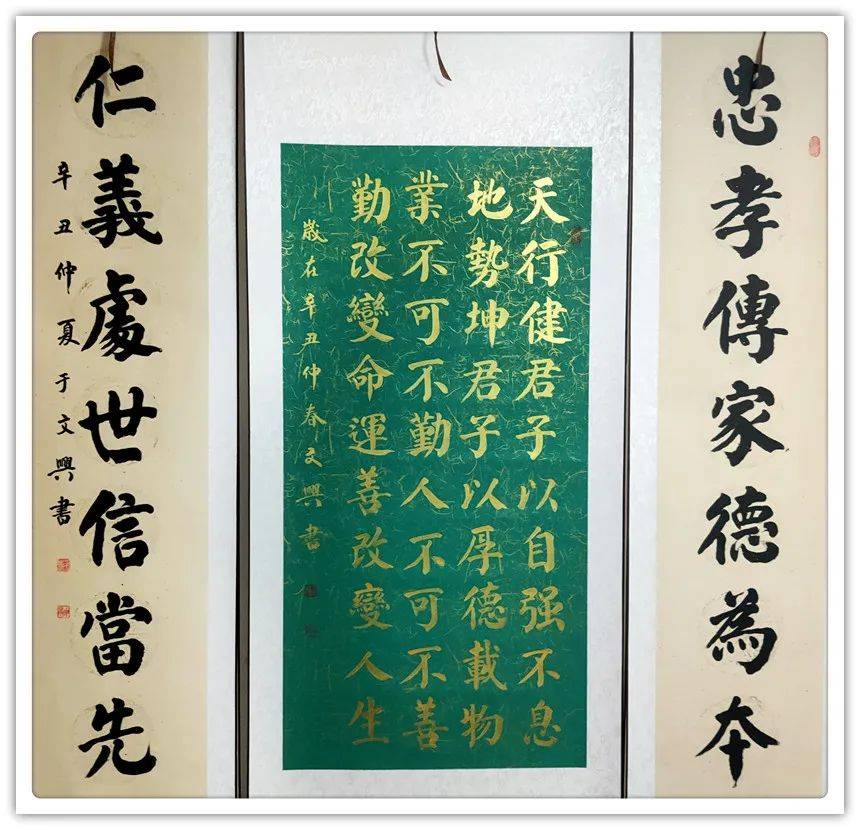 忠孝傳家德為本
天行健君子以自强不息
地勢坤君子以厚德載物
業不可不勤人不可不善
勤改變命運善改變人生
歲在辛丑仲春文興書
仁義處世信當先
辛丑仲夏于文興書